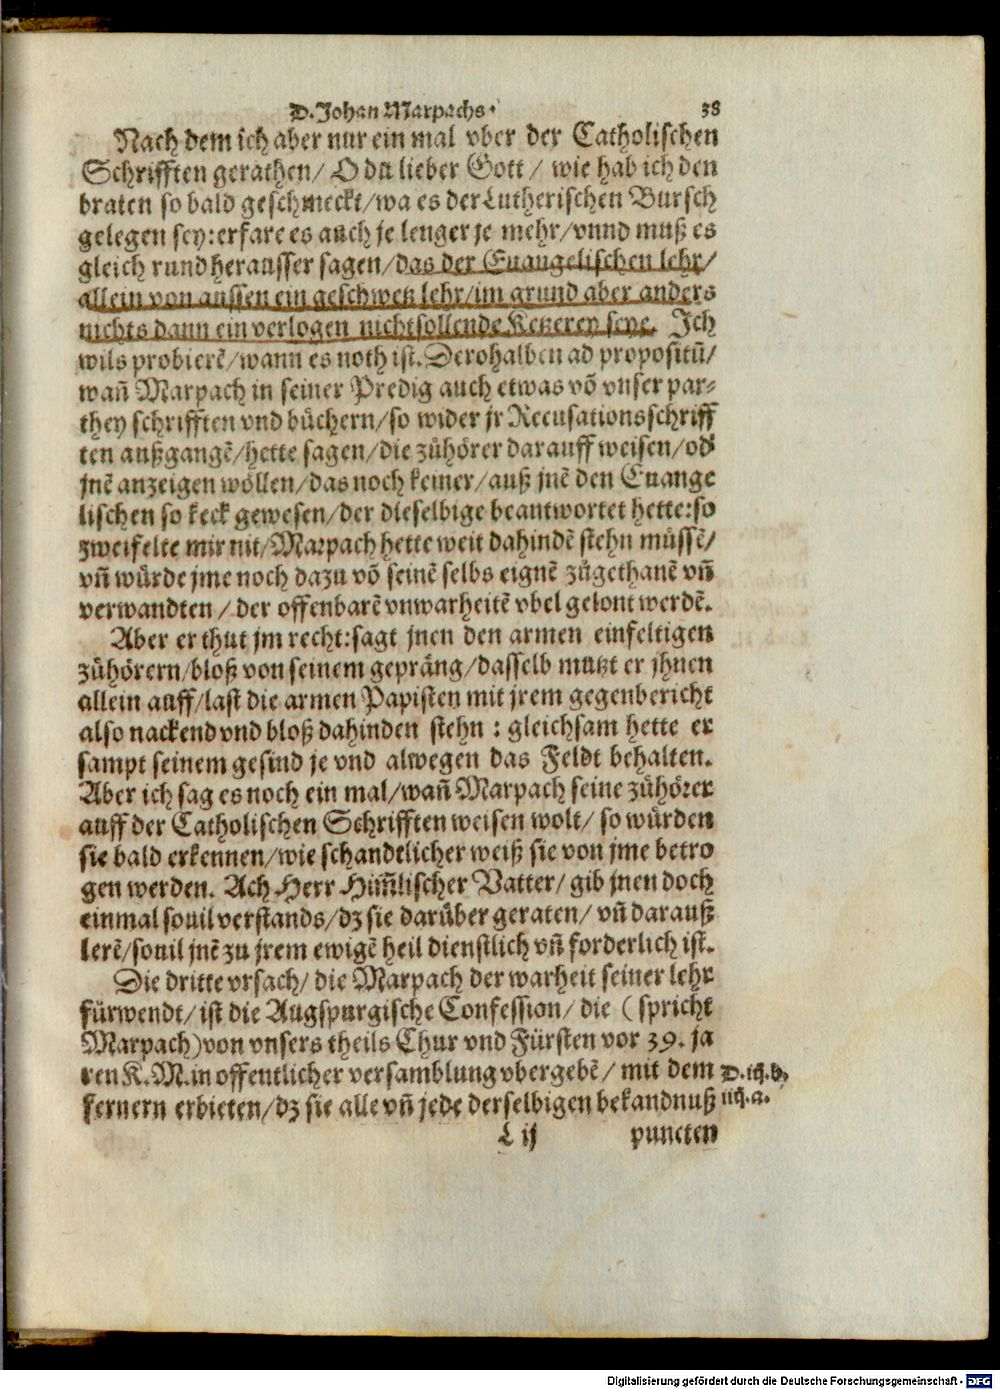 D. Johan Marpachs. 38
Nach dem ich aber nur ein mal vber der Catholischen
Schrifften gerathen/ O du lieber Gott/ wie hab ich den
braten so bald geschmeckt/wa es der Lutherischen Bursch
gelegen sey: erfare es auch je lenger je mehr/vnnd muß es
gleich rund herausser sagen/das der Euangelischen lehr/
allein von aussen ein geschwetz lehr/im grund aber anders
nichts dann ein verlogen nichtsollende Ketzerey seye. Ich
wils probierē/wann es noth ist. Derohalben ad propositū/
wañ Marpach in seiner Predig auch etwas vō vnser par-
they schrifften vnd büchern/so wider jr Recusationsschriff
ten außgangē/hette sagen/die zůhörer darauff weisen/od'
jnē anzeigen wöllen/das noch keiner/auß jnē den Euange
lischen so keck gewesen/der dieselbige beantwortet hette: so
zweifelte mir nit/Marpach hette weit dahindē stehn müssē/
vñ würde jme noch dazu vō seinē selbs eignē zůgethanē vñ
verwandten/ der offenbarē vnwarheitē vbel gelont werdē.
Aber er thut jm recht: sagt jnen den armen einfeltigen
zůhörern/bloß von seinem gepräng/dasselb mutzt er jhnen
allein auff/last die armen Papisten mit jrem gegenbericht
also nackend vnd bloß dahinden stehn : gleichsam hette er
sampt seinem gesind je vnd alwegen das Feldt behalten.
Aber ich sag es noch ein mal/wañ Marpach seine zůhörer
auff der Catholischen Schrifften weisen wolt/ so würden
sie bald erkennen/wie schandtlicher weiß sie von jme betro
gen werden. Ach Herr Him̃lischer Vatter/ gib jnen doch
einmal souil verstands/dz sie darüber geraten/ vñ darauß
lerē/souil jnē zu jrem ewigē heil dienstlich vñ forderlich ist.
Die dritte vrsach/ die Marpach der warheit seiner lehr
fürwendt/ ist die Augspurgische Confession/ die ( spricht
Marpach) von vnsers theils Chur vnd Fürsten vor 39. ja
ren K. M. in offentlicher versamblung vbergebē/ mit dem D. iij. b,
fernern erbieten/dz sie alle vñ jede derselbigen bekandnuß iiij. a.
L ij puncten
Digitalisierung gefördert durch die Deutsche Forschungsgemeinschaft - DFG